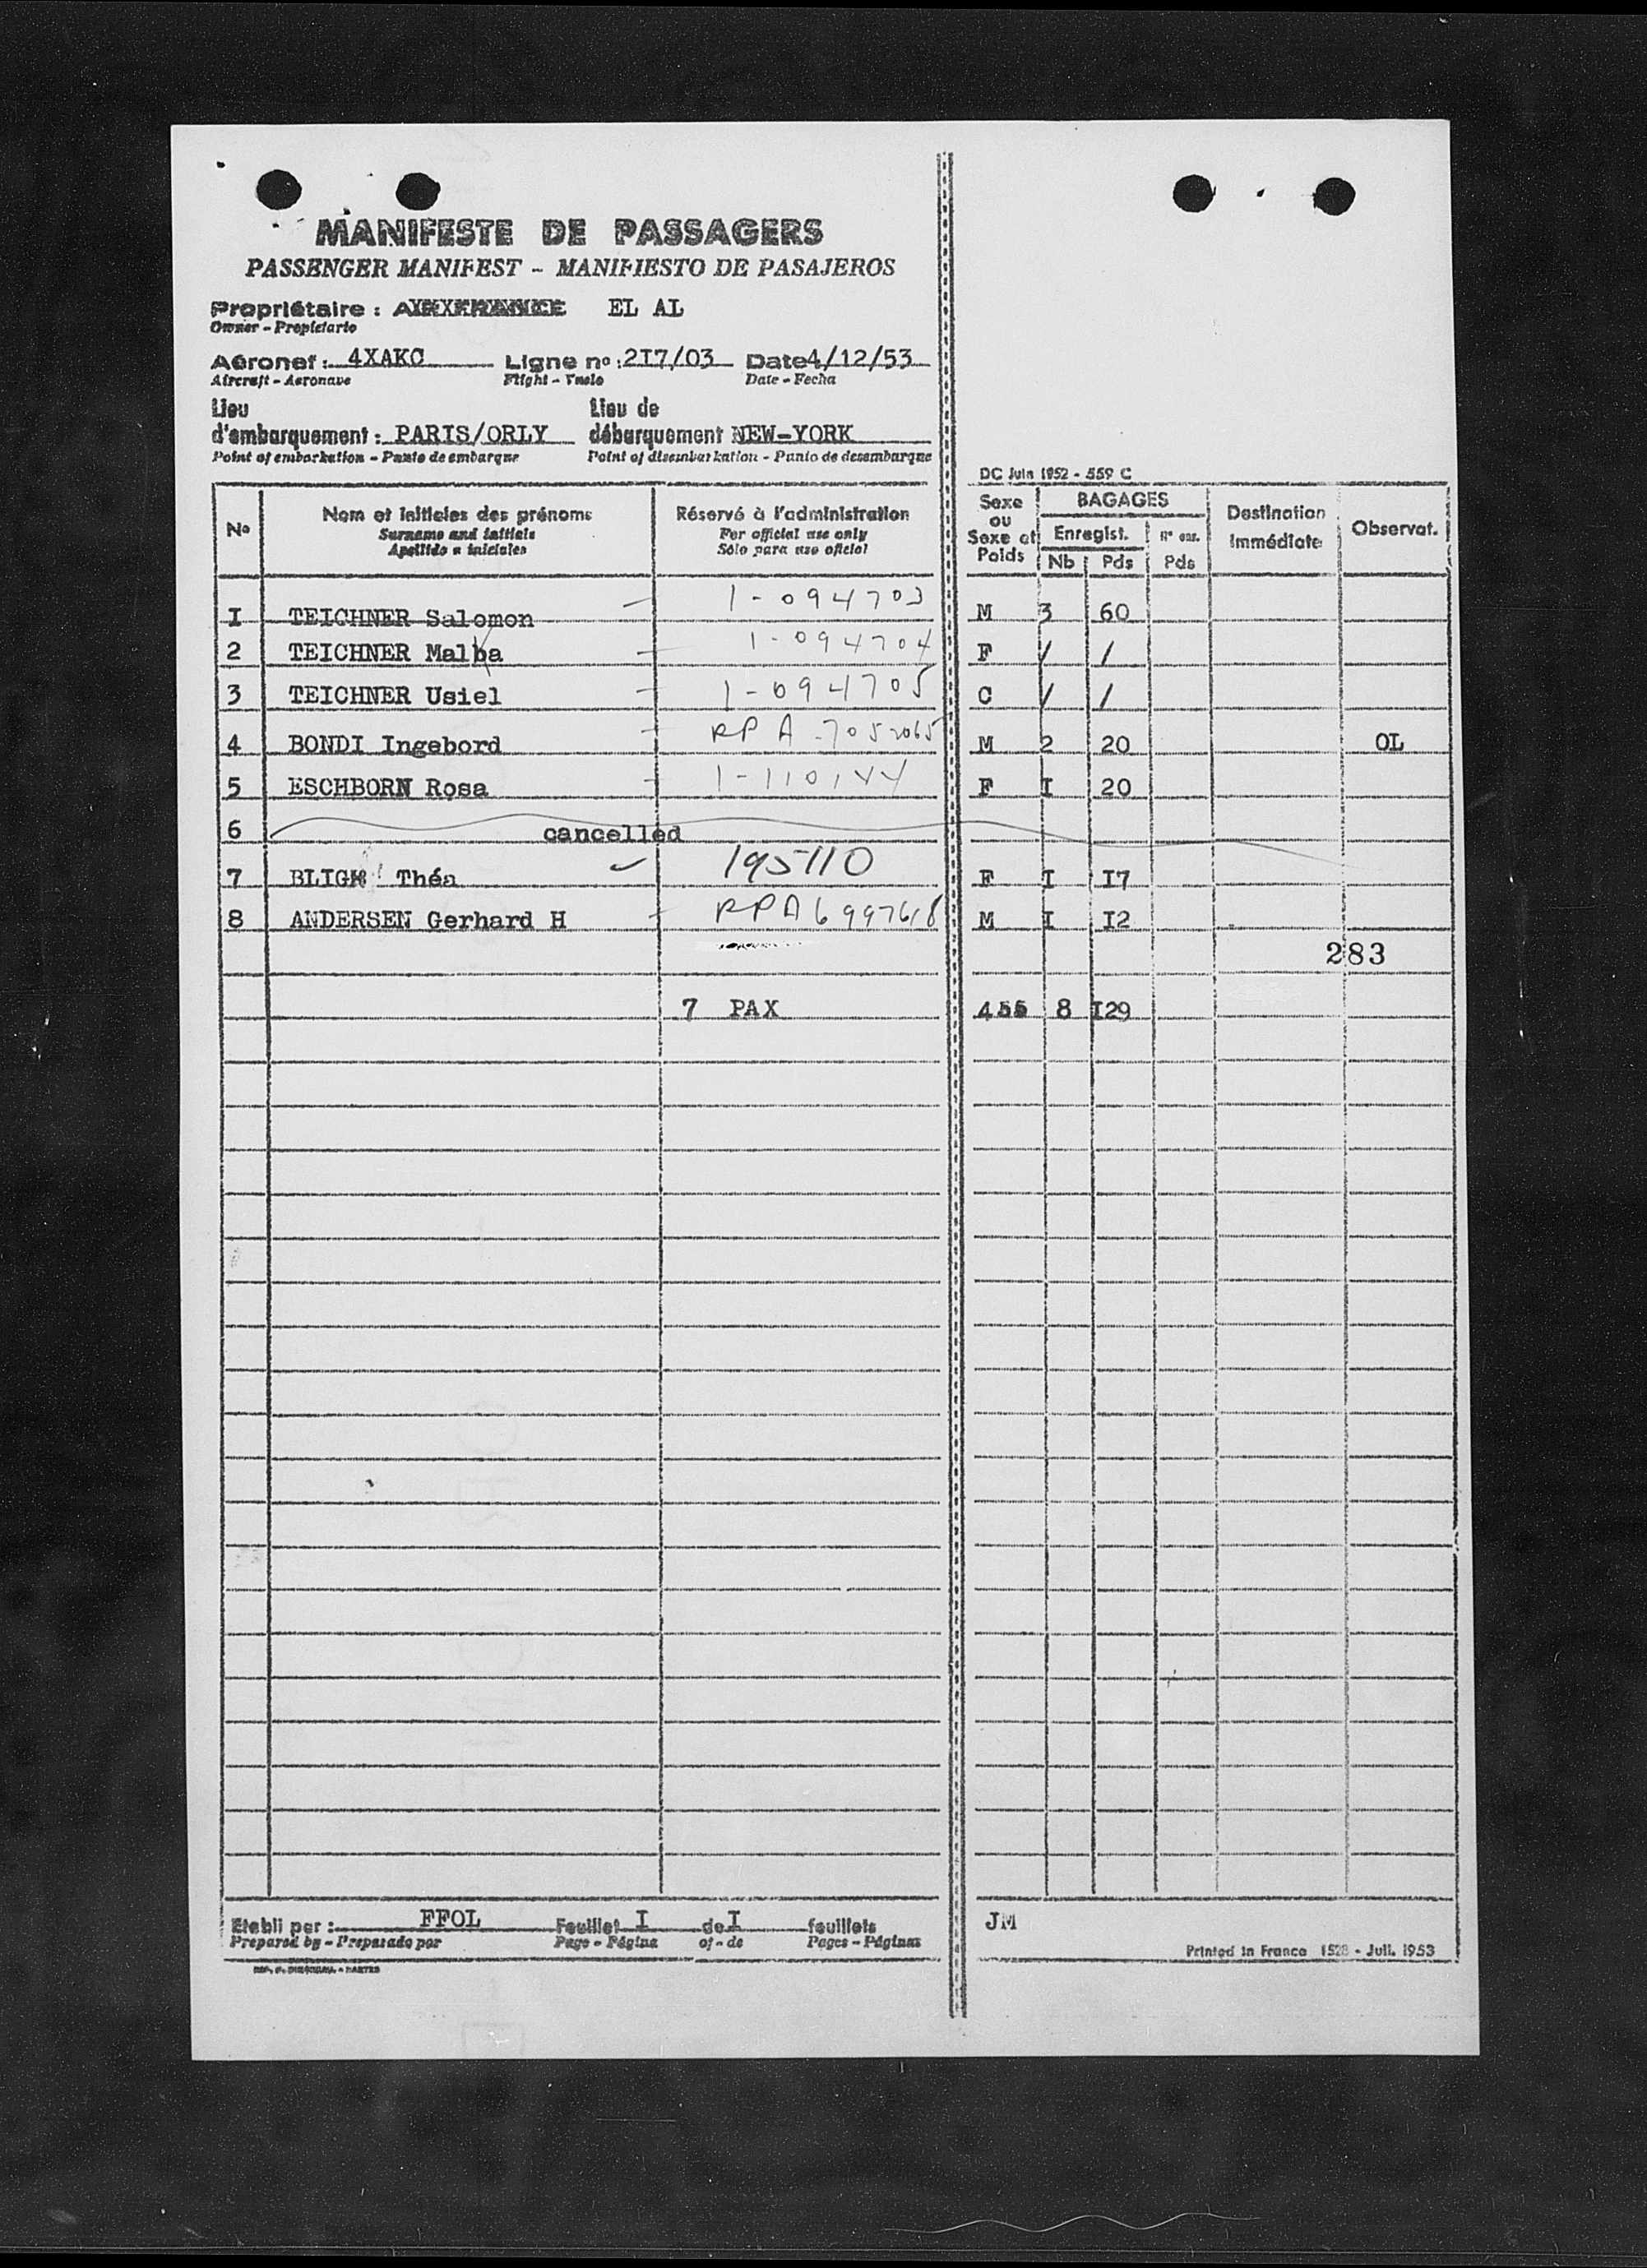 MANIFESTE DE PASSAGERS
PASSENGER MANIFEST - MANIFIESTO DE PASAJEROS
Propriétaire : AIRXFRANCE EL AL
Owner - Propietario
Aéronef : 4XAKC Ligne no : 2I7/03 Date 4/12/53
Aircraft - Aeronave Flight - Vuelo Date - Fecha
Lieu d'embarquement : PARIS/ORLY Lieu de débarquement NEW-YORK
Point of embarkation - Punto de embarque Point of disembarkation - Punto de desembarque
DC Juin 1952 - 559 C
No Nom et initiales des prénoms Réservé à l'administration Sexe ou Sexe et Poids BAGAGES Destination immédiate Observat.
Surname and initials For official use only Enregist.
Apellido e iniciales Sólo para uso oficial Nb Pds Pds
I TEICHNER Salomon 1-094703 M 3 60
2 TEICHNER Malka 1-094704 F / /
3 TEICHNER Usiel 1-094705 C / /
4 BONDI Ingebord RPA-7052065 M 2 20 OL
5 ESCHBORN Rosa 1-110144 F I 20
6 cancelled
7 BLIGH Théa 195110 F I I7
8 ANDERSEN Gerhard H RPA6997618 M I I2
283
7 PAX 455 8 I29
Etabli par : FFOL Feuillet I de I feuillets JM
Prepared by - Preparado por Page - Página of - de Pages - Páginas
Printed in France 1528 - Juil. 1953